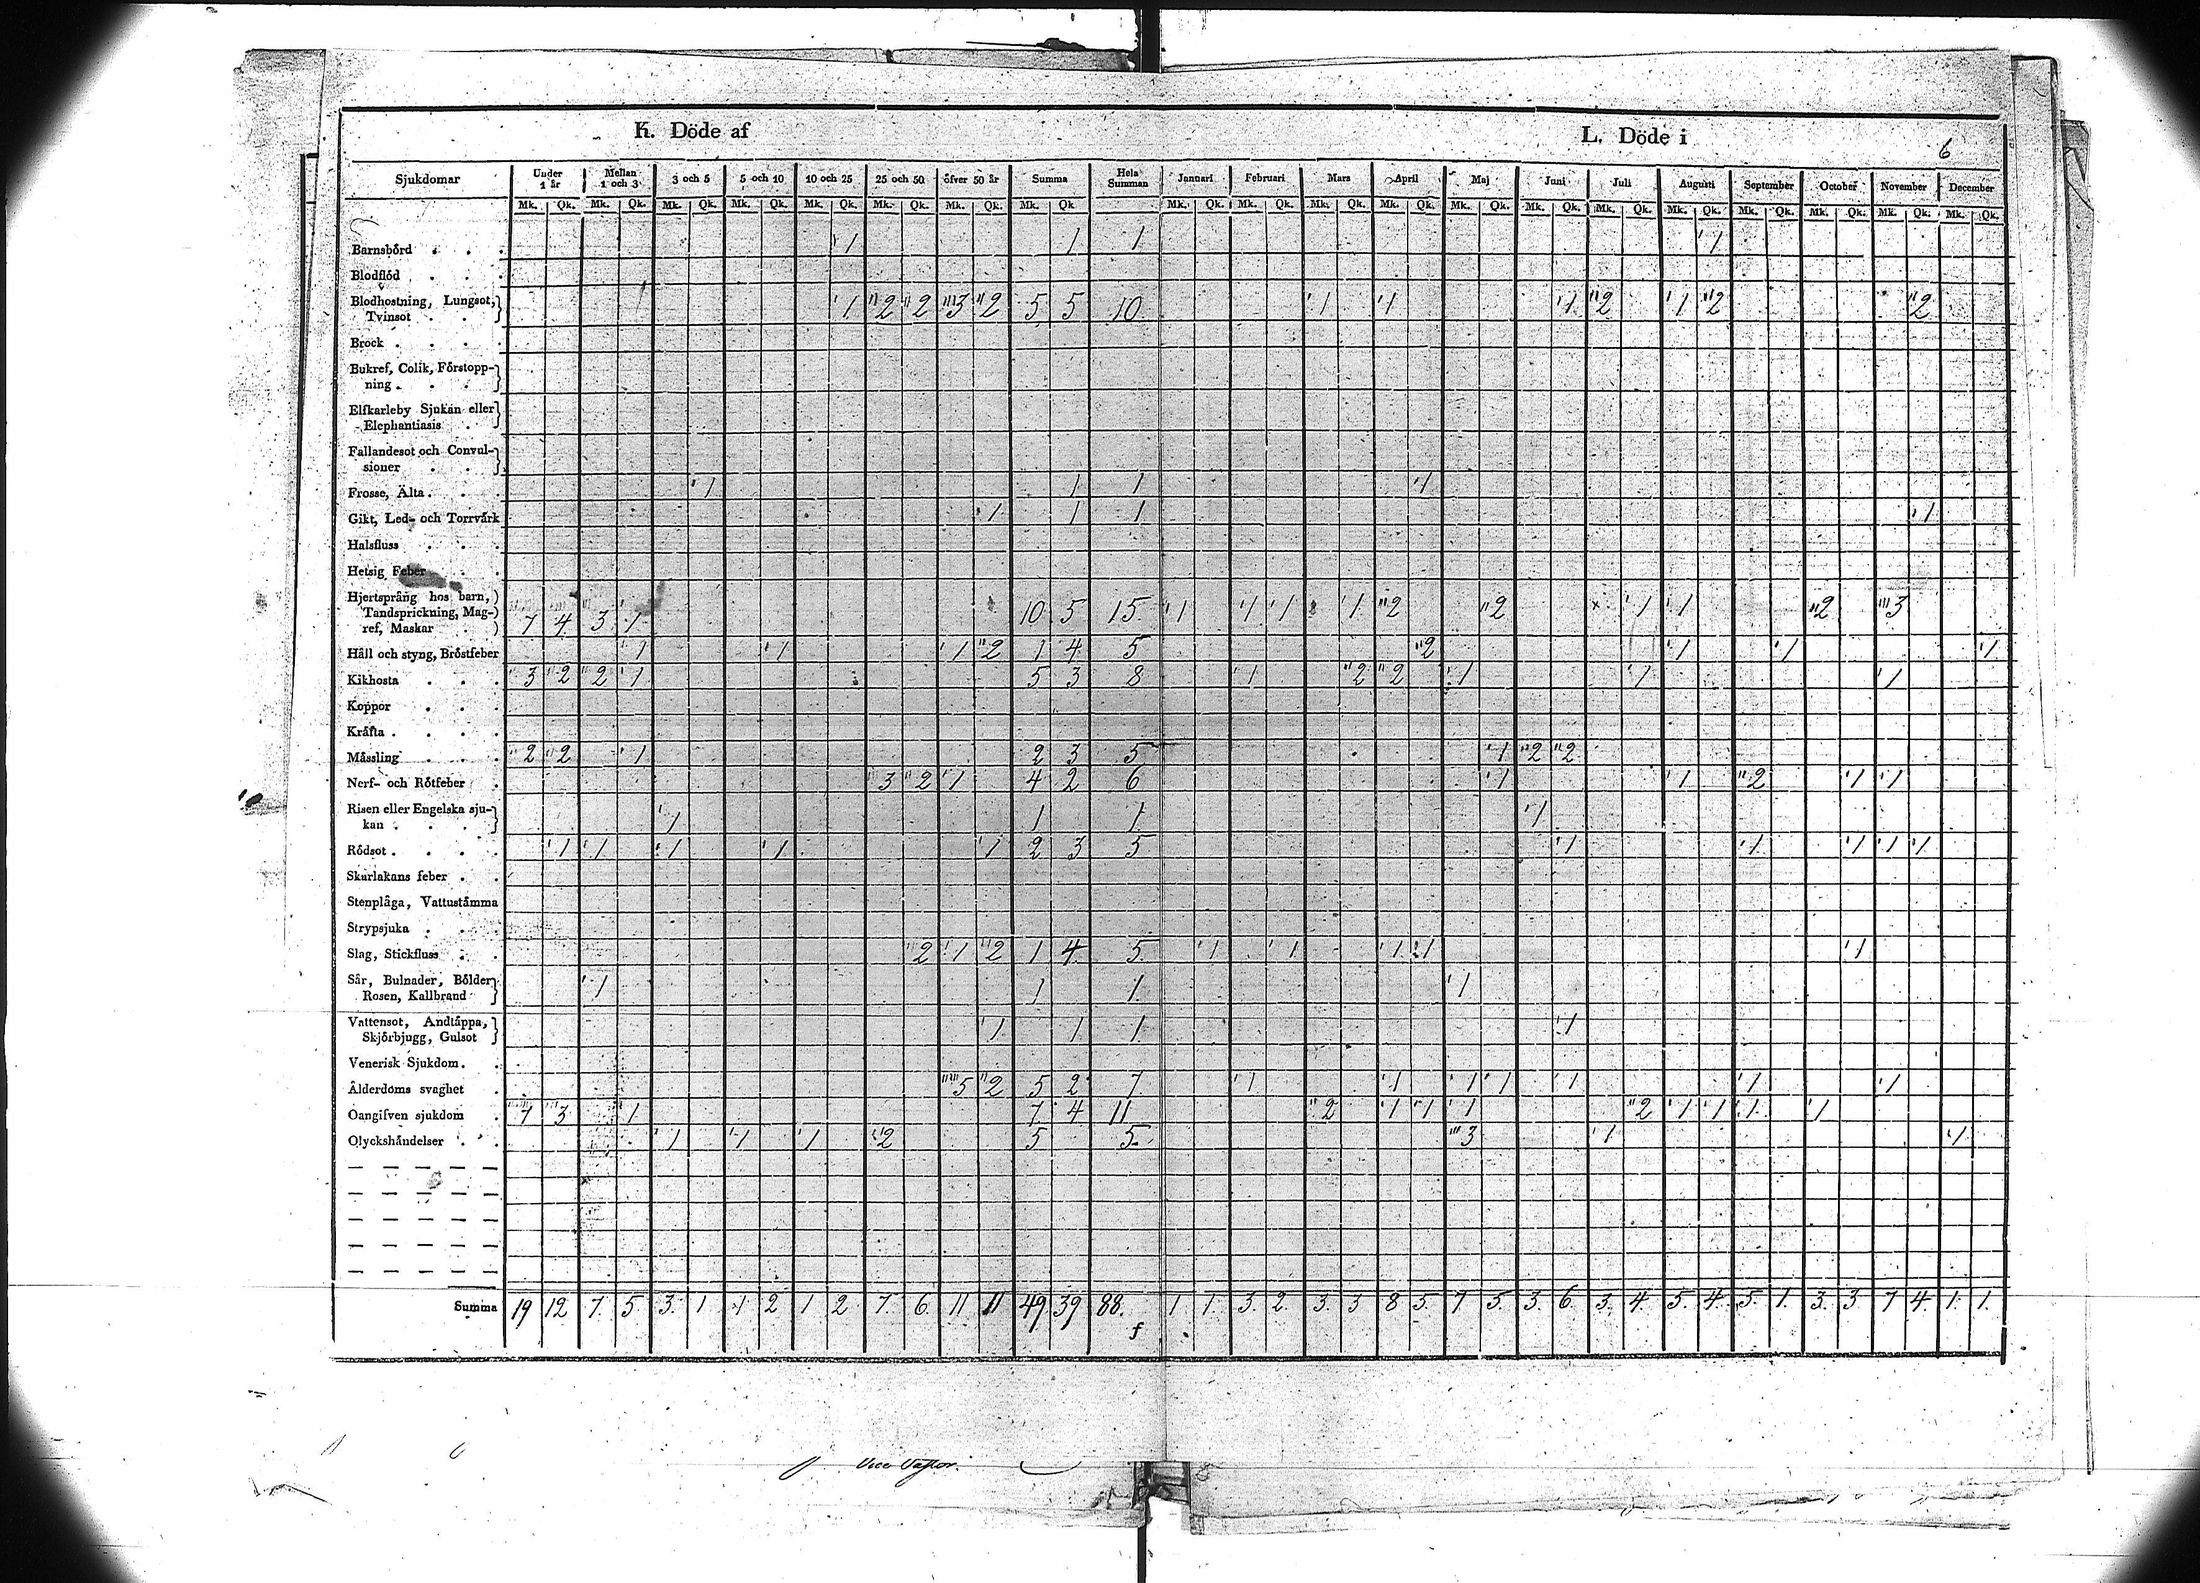 K. Döde af L. Döde i
6
Sjukdomar Under 1 år Mellan 1 och 3 3 och 5 5 och 10 10 och 25 25 och 50 öfver 50 år Summa Hela Summan Januari Februari Mars April Maj Juni Juli Augusti September October November December
Mk. Qk. Mk. Qk. Mk. Qk. Mk. Qk. Mk. Qk. Mk. Qk. Mk. Qk. Mk. Qk Mk. Qk. Mk. Qk. Mk. Qk. Mk. Qk. Mk. Qk. Mk. Qk. Mk. Qk. Mk. Qk. Mk. Qk. Mk. Qk. Mk. Qk. Mk. Qk.
Barnsbörd . . . 1 1 1 1
Blodflöd . . .
Blodhostning, Lungsot,
Tvinsot . . 1 2 2 3 2 5 5 10 1 1 1 2 1 2 2
Brock . . . .
Bukref, Colik, Förstopp-
ning . . .
Elfkarleby Sjukan eller
Elephantiasis .
Fallandesot och Convul-
sioner . .
Frosse, Älta . . . 1 1 1 1
Gikt, Led- och Torrvärk 1 1 1 1
Halsfluss . . .
Hetsig Feber . .
Hjertsprång hos barn,
Tandsprickning, Mag-
ref, Maskar . 7 4 3 1 10 5 15 1 1 1 1 2 2 1 1 2 3
Håll och styng, Bröstfeber 1 1 1 2 1 4 5 2 1 1 1
Kikhosta . . . 3 2 2 1 5 3 8 1 2 2 1 1 1
Koppor . . .
Kräfta . . . .
Mässling . . . 2 2 1 2 3 5 1 2 2
Nerf- och Rötfeber . 3 2 1 4 2 6 1 1 2 1 1
Risen eller Engelska sju-
kan . . . 1 1 1 1
Rödsot . . . . 1 1 1 1 1 2 3 5 1 1 1 1 1
Skarlakans feber . .
Stenplåga, Vattustämma
Strypsjuka . . .
Slag, Stickfluss . . 2 1 2 1 4 5 1 1 1 1 1
Sår, Bulnader, Bölder,
Rosen, Kallbrand 1 1 1 1
Vattensot, Andtäppa,
Skjörbjugg, Gulsot 1 1 1 1
Venerisk Sjukdom . .
Ålderdoms svaghet . 5 2 5 2 7 1 1 1 1 1 1 1
Oangifven sjukdom . 7 3 1 7 4 11 2 1 1 1 2 1 1 1 1
Olyckshändelser . . 1 1 1 2 5 5 3 1 1
Summa 19 12 7. 5 3. 1 1 2 1 2 7. 6 11 11 49 39 88. 1 1. 3. 2. 3. 3 8 5. 7 5. 3. 6. 3. 4. 5. 4. 5. 1. 3. 3 7 4. 1. 1.
Vice Pastor.